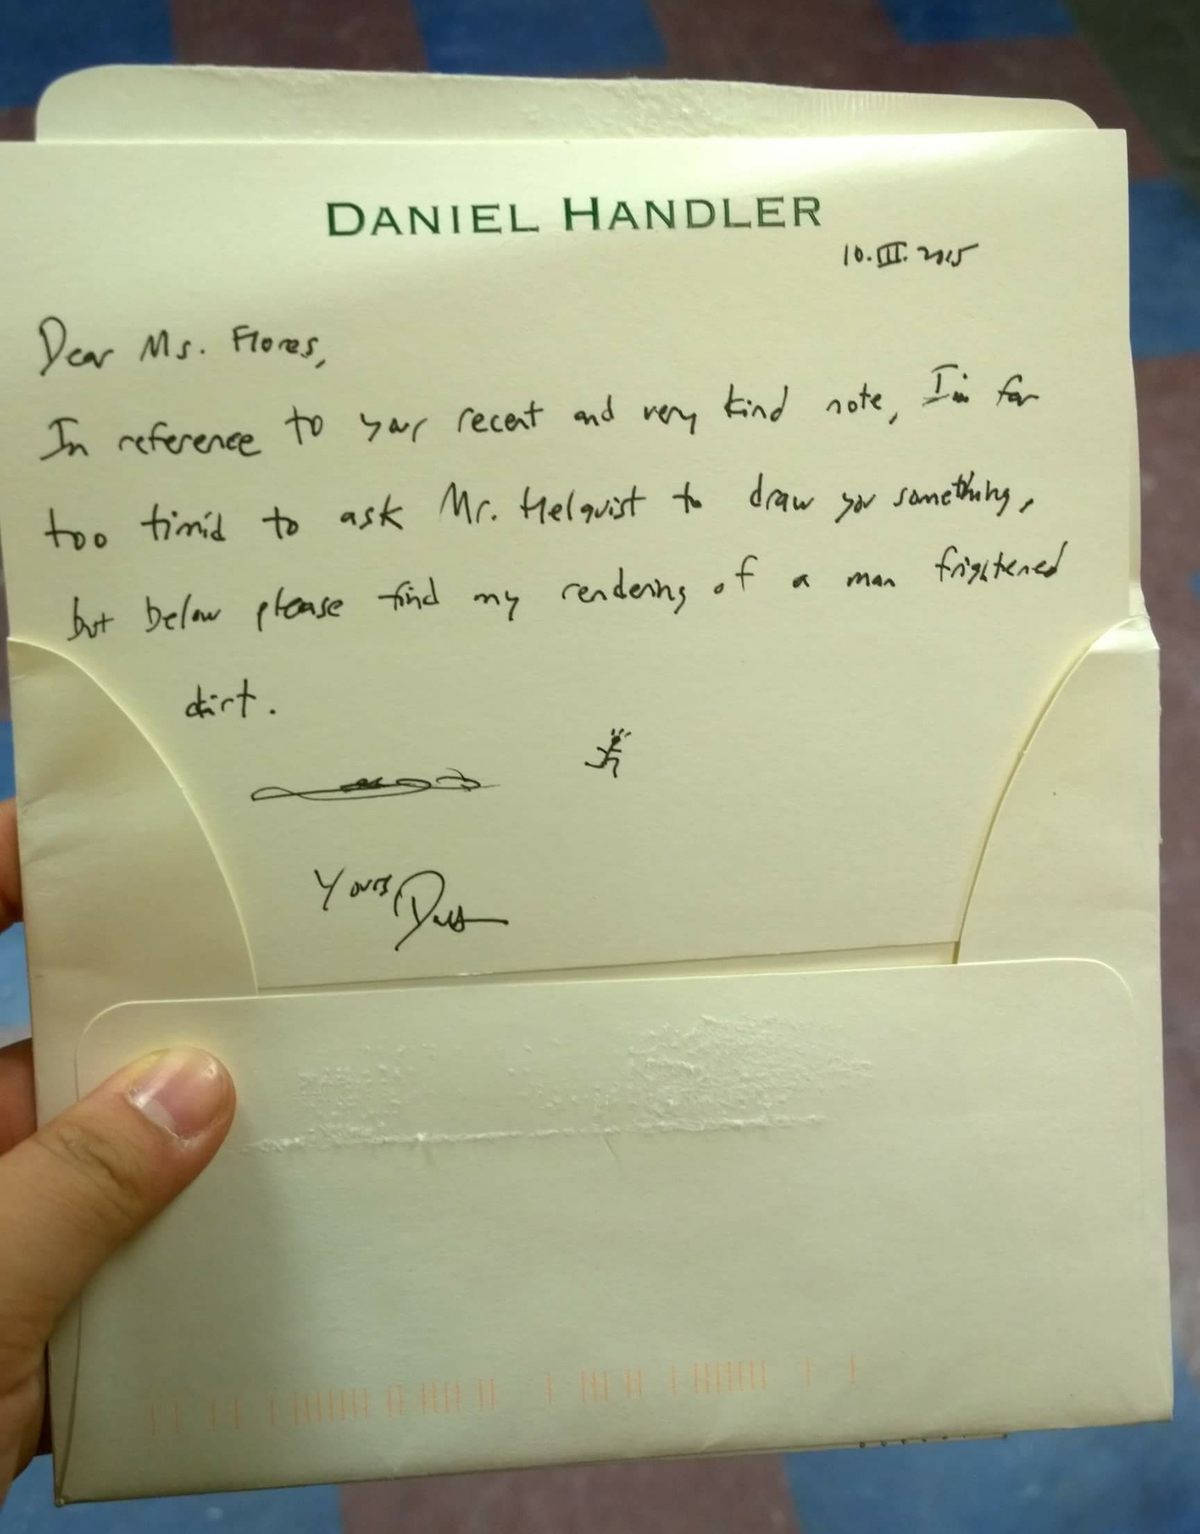 DANIEL HANDLER
10.III.2015
Dear Ms. Flores,
In reference to your recent and very kind note, I'm far
too timid to ask Mr. Helquist to draw you something,
but below please find my rendering of a man frightened
dirt.
Yours,